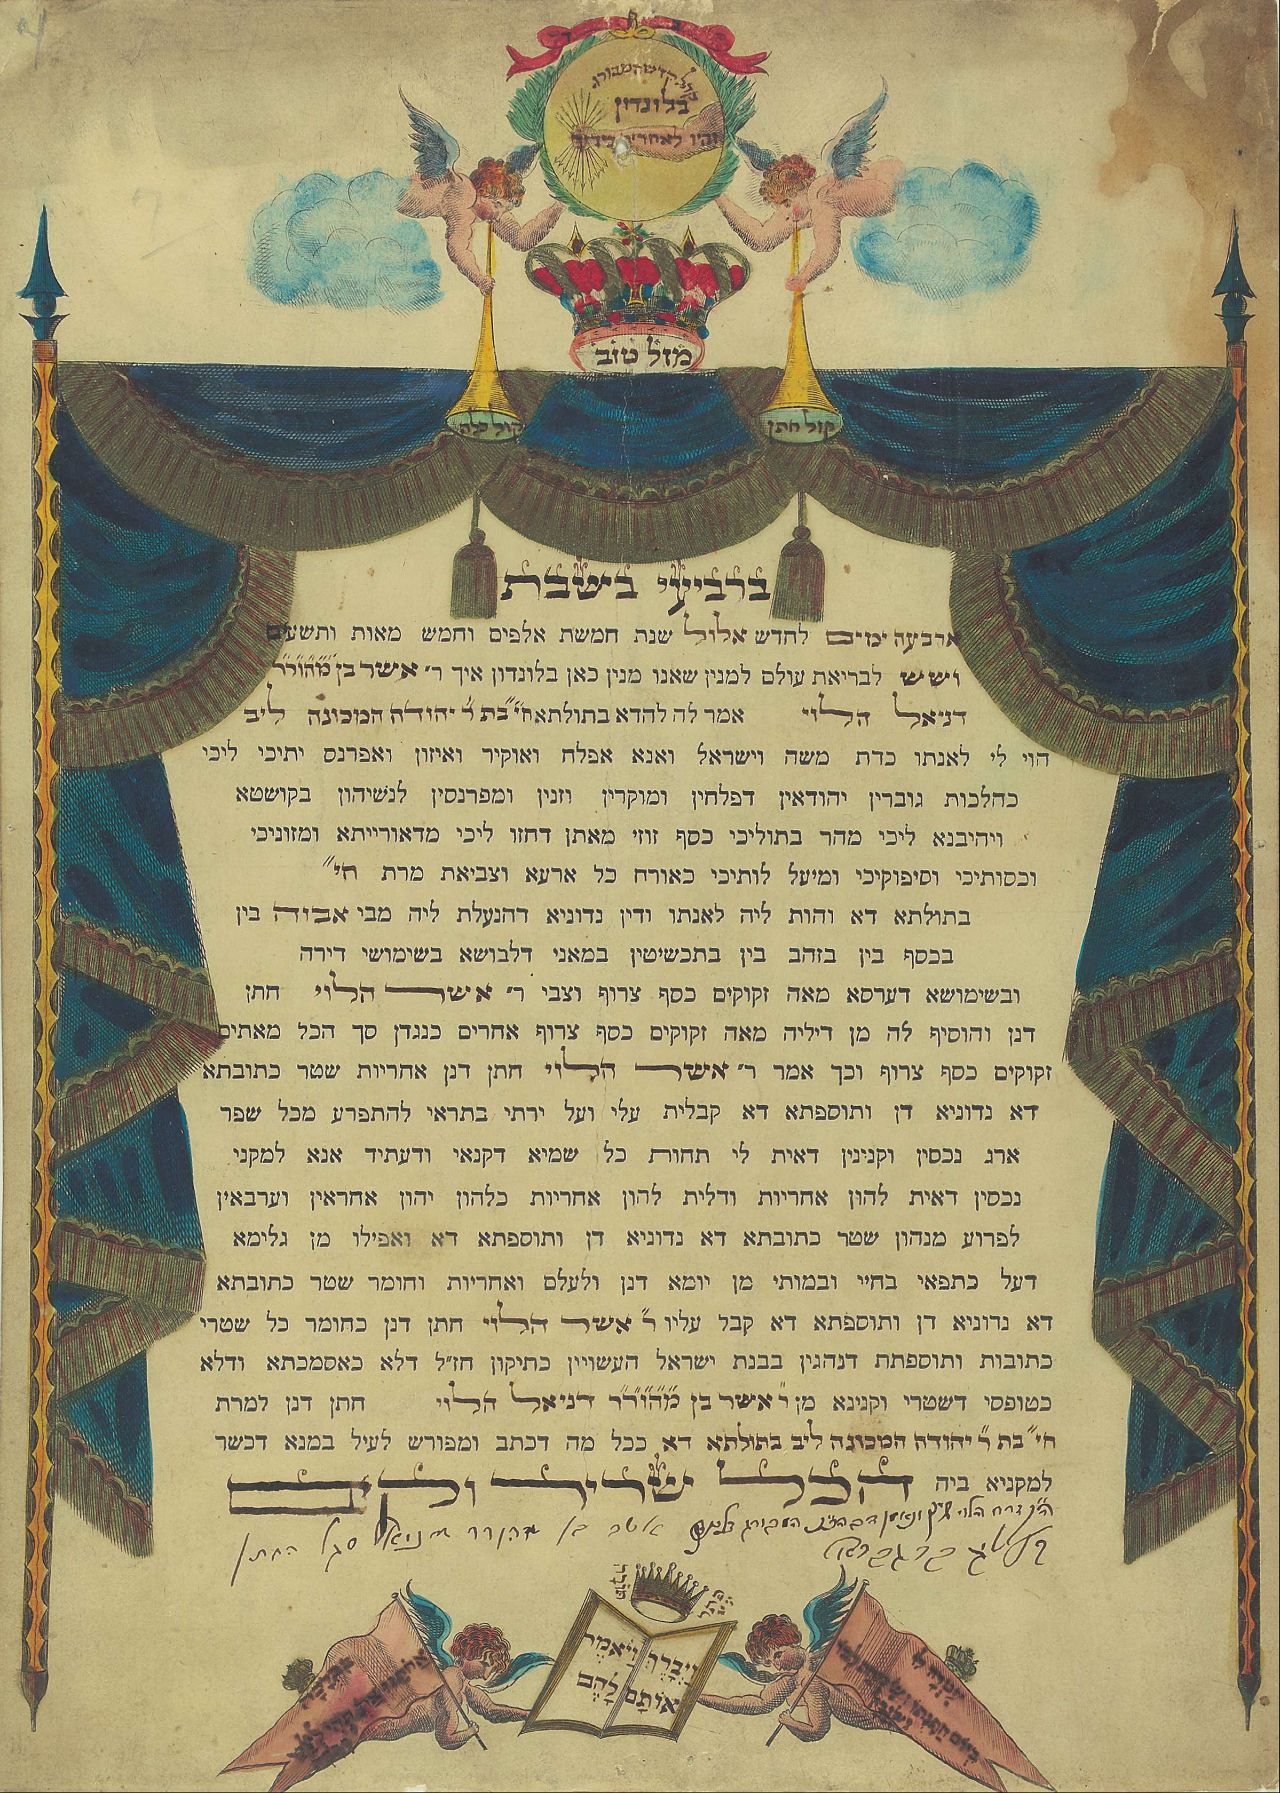 קהל קדש המבורג
בלונדון
והיו לאחדים בידך
מזל טוב
קול חתן
קול כלה
ברביעי בשבת
ארבעה ימים לחדש אלול שנת חמשת אלפים וחמש מאות ותשעים
ושש לבריאת עולם למנין שאנו מנין כאן בלונדון איך ר׳ אשר בן מהורר
דניאל הלוי אמר לה להדא בתולתא חי״ בת ר׳ יהודה המכונה ליב
הוי לי לאנתו כדת משה וישראל ואנא אפלח ואוקיר ואיזון ואפרנס יתיכי ליכי
כהלכות גוברין יהודאין דפלחין ומוקרין וזנין ומפרנסין לנשיהון בקושטא
ויהיבנא ליכי מהר בתוליכי כסף זוזי מאתן דחזו ליכי מדאורייתא ומזוניכי
וכסותיכי וסיפוקיכי ומיעל לותיכי כאורח כל ארעא וצביאת מרת חי״
בתולתא דא והות ליה לאנתו ודין נדוניא דהנעלת ליה מבי אבוה בין
בכסף בין בזהב בין בתכשיטין במאני דלבושא בשימושי דירה
ובשימושא דערסא מאה זקוקים כסף צרוף וצבי ר׳ אשר הלוי חתן
דנן והוסיף לה מן דיליה מאה זקוקים כסף צרוף אחרים כנגדן סך הכל מאתים
זקוקים כסף צרוף וכך אמר ר׳ אשר הלוי חתן דנן אחריות שטר כתובתא
דא נדוניא דן ותוספתא דא קבלית עלי ועל ירתי בתראי להתפרע מכל שפר
ארג נכסין וקנינין דאית לי תחות כל שמיא דקנאי ודעתיד אנא למקני
נכסין דאית להון אחריות ודלית להון אחריות כלהון יהון אחראין וערבאין
לפרוע מנהון שטר כתובתא דא נדוניא דן ותוספתא דא ואפילו מן גלימא
דעל כתפאי בחיי ובמותי מן יומא דנן ולעלם ואחריות וחומר שטר כתובתא
דא נדוניא דן ותוספתא דא קבל עליו ר׳ אשר הלוי חתן דנן כחומר כל שטרי
כתובות ותוספתת דנהגין בבנת ישראל העשויין כתיקון חז״ל דלא כאסמכתא ודלא
כטופסי דשטרי וקנינא מן ר׳ אשר בן מהורר דניאל הלוי חתן דנן למרת
חי״ בת ר׳ יהודה המכונה ליב בתולתא דא ככל מה דכתב ומפורש לעיל במנא דכשר
למקניא ביה הכל שריר וקים
אשר בן דניאל סגל החתן
ויברך ויאמר
אותם להם